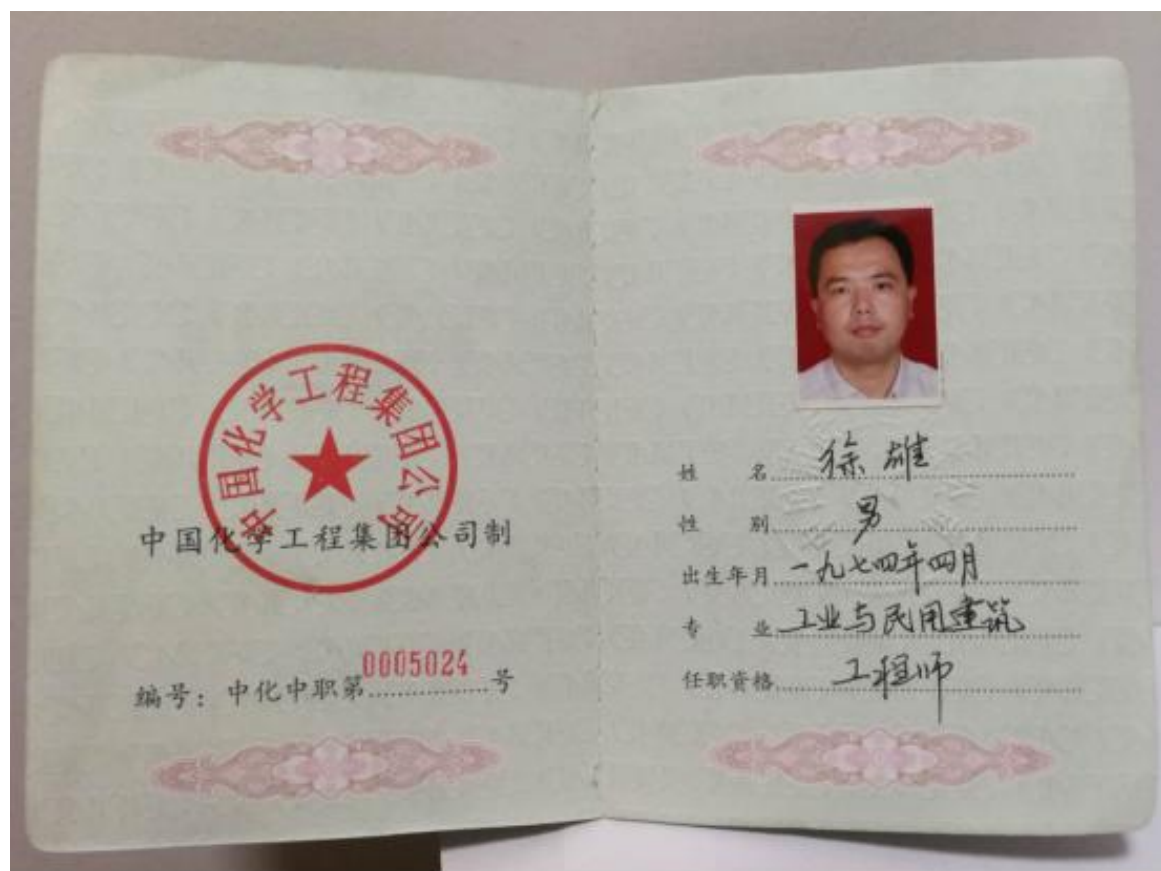 中国化学工程集团公司
中国化学工程集团公司制
编号：中化中职第0005024号
姓名 徐雄
性别 男
出生年月 一九七四年四月
专业 工业与民用建筑
任职资格 工程师